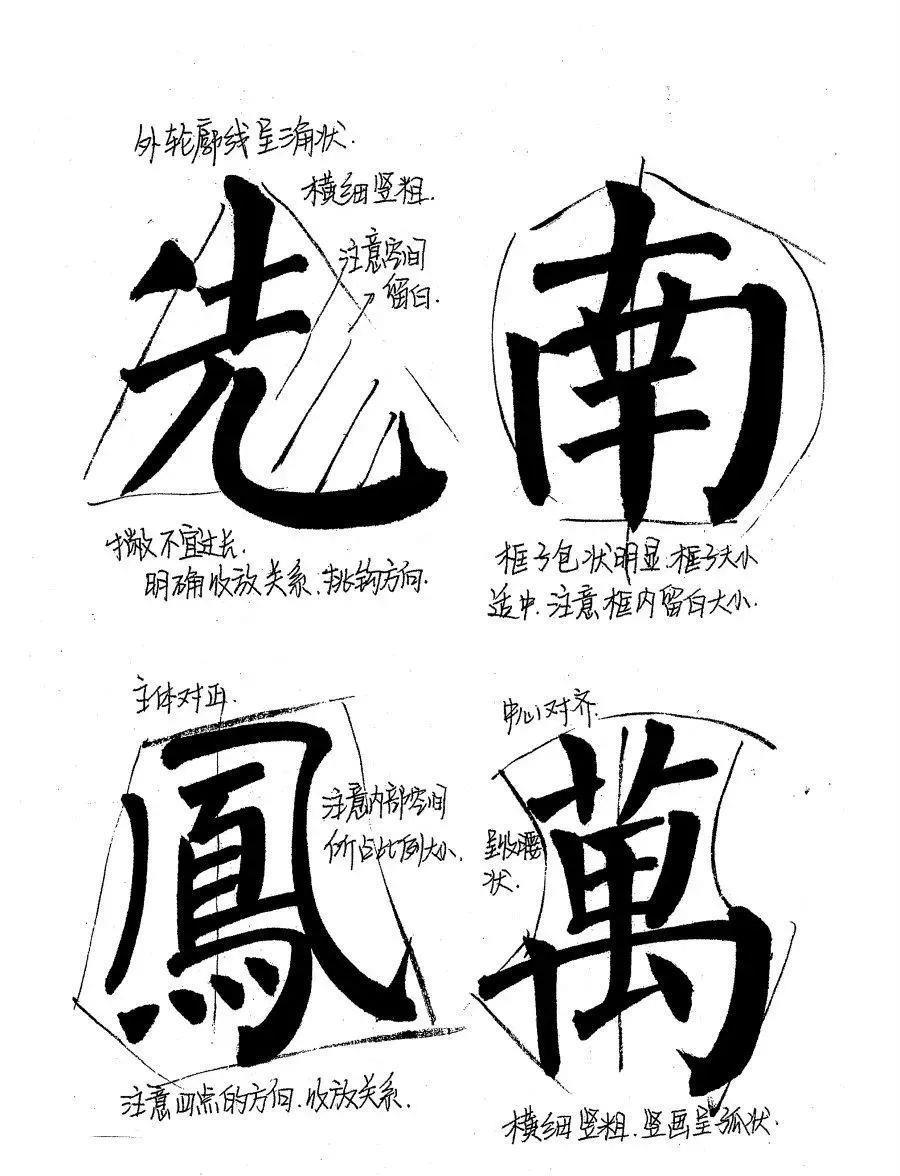 外轮廓线呈三角状.
横细竖粗.
注意空间
留白.
先
撇不宜过长.
明确收放关系、挑钩方向.
南
框子包状明显、框子大小
适中、注意框内留白大小.
主体对正.
鳳
注意内部空间
所占比例大小.
注意四点的方向、收放关系.
中心对齐.
萬
呈收腰
状.
横细竖粗、竖画呈弧状.